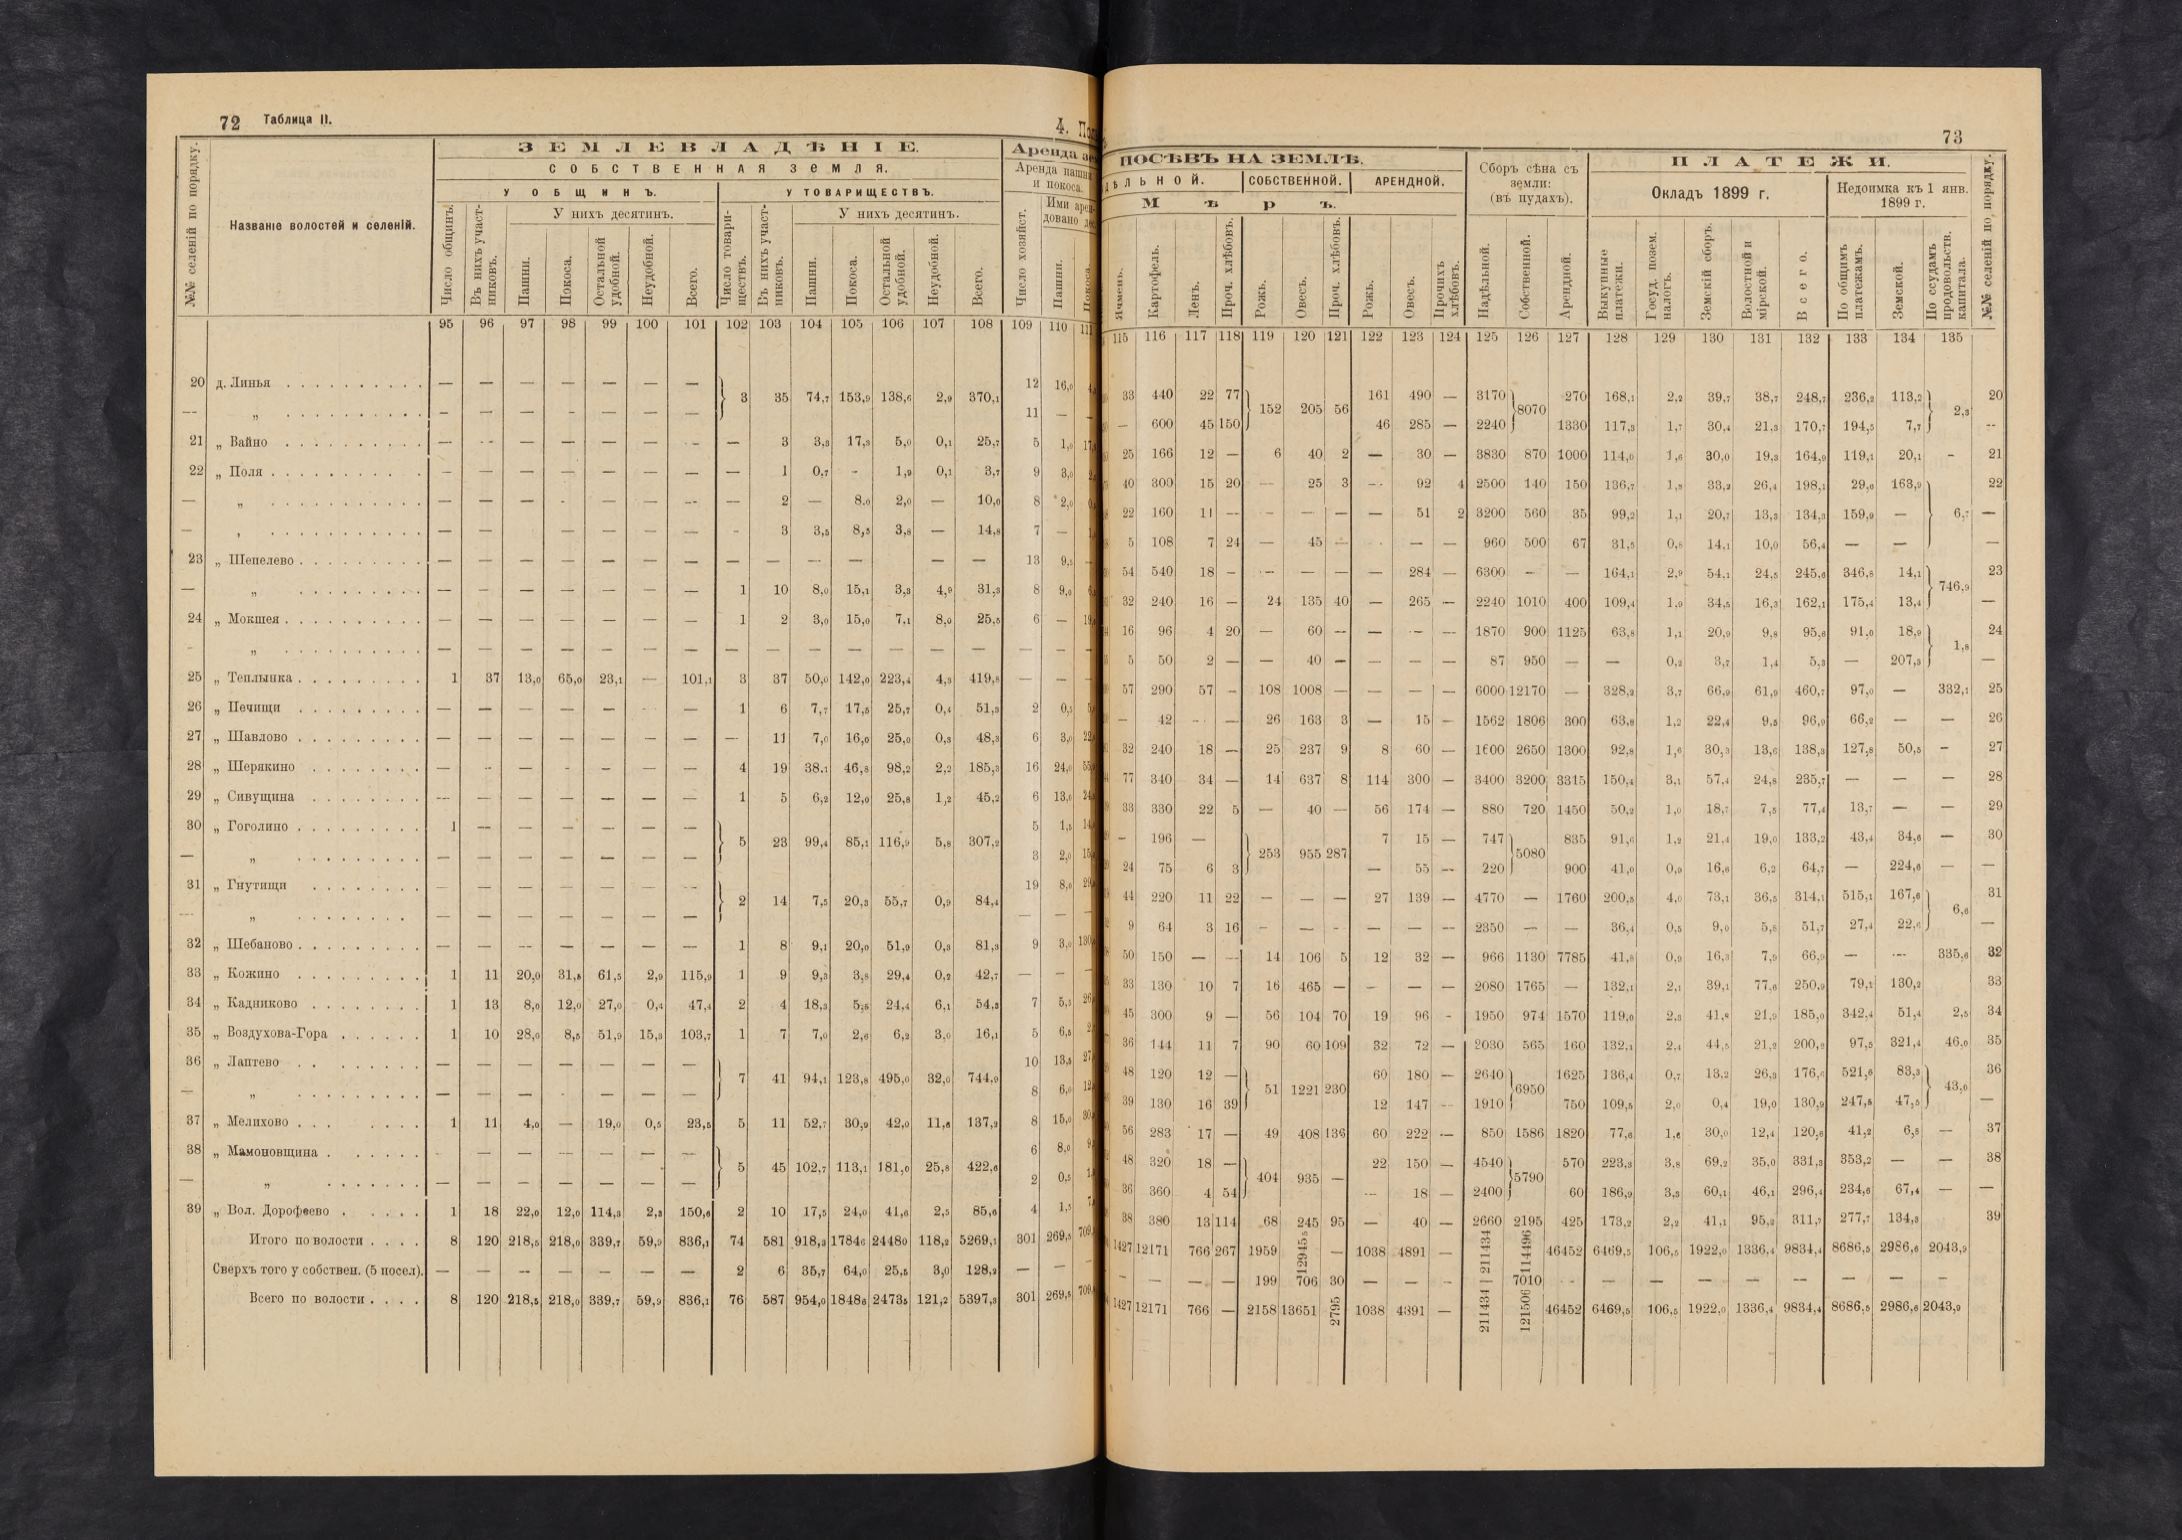 72 Таблица II.
ЗЕМЛЕВЛАДѢНІЕ.
СОБСТВЕННАЯ ЗЕМЛЯ.
У ОБЩИНЪ. У ТОВАРИЩЕСТВЪ.
У нихъ десятинъ. У нихъ десятинъ.
Аренда пашни и покоса.
№№ селеній по порядку. Названіе волостей и селеній. Число общинъ. Въ нихъ участниковъ. Пашни. Покоса. Остальной удобной. Неудобной. Всего. Число товариществъ. Въ нихъ участниковъ. Пашни. Покоса. Остальной удобной. Неудобной. Всего. Число хозяйст. Пашни. Покоса.
95 96 97 98 99 100 101 102 103 104 105 106 107 108 109 110
20 д. Линья — — — — — — — 3 35 74,7 153,9 138,6 2,9 370,1 12 16,0
— „ — — — — — — — 11 —
21 „ Вайно — — — — — — — — 3 3,3 17,3 5,0 0,1 25,7 5 1,0
22 „ Поля — — — — — — — — 1 0,7 - 1,9 0,1 3,7 9 3,0
— „ — — — - — — — — 2 — 8,0 2,0 — 10,0 8 2,0
— „ — — — — — — — - 3 3,5 8,5 3,8 — 14,8 7 —
23 „ Шепелево — — — — — — — — — — — — — 13 9,5
— „ — — — — — — — 1 10 8,0 15,1 3,3 4,9 31,3 8 9,0
24 „ Мокшея — — — — — — — 1 2 3,0 15,0 7,1 8,0 25,5 6 —
- „ — — — — — — — — — — — — — — — —
25 „ Теплынка 1 37 13,0 65,0 23,1 — 101,1 3 37 50,0 142,0 223,4 4,3 419,8 — —
26 „ Печищи — — — — — — — 1 6 7,7 17,5 25,7 0,4 51,3 2 0,5
27 „ Шавлово — — — — — — — — 11 7,0 16,0 25,0 0,3 48,3 6 3,0
28 „ Шерякино — — — - — — — 4 19 38,1 46,8 98,2 2,2 185,3 16 24,0
29 „ Сивущина — — — — — — — 1 5 6,2 12,0 25,8 1,2 45,2 6 13,0
30 „ Гоголино 1 — — — — — — 5 23 99,4 85,1 116,9 5,8 307,2 5 1,5
— „ — — — — — — — 3 2,0
31 „ Гнутищи — — — — — — — 2 14 7,5 20,3 55,7 0,9 84,4 19 8,0
— „ — — — — — — — — —
32 „ Шебаново — — — — — — — 1 8 9,1 20,0 51,9 0,3 81,3 9 3,0
33 „ Кожино 1 11 20,0 31,5 61,5 2,9 115,9 1 9 9,3 3,8 29,4 0,2 42,7 — —
34 „ Кадниково 1 13 8,0 12,0 27,0 0,4 47,4 2 4 18,3 5,5 24,4 6,1 54,3 7 5,3
35 „ Воздухова-Гора 1 10 28,0 8,5 51,9 15,3 103,7 1 7 7,0 2,6 6,2 3,0 16,1 5 6,5
36 „ Лаптево — — — — — — — 7 41 94,1 123,8 495,0 32,0 744,9 10 13,5
— „ — — — - — — — 8 6,0
37 „ Мелихово 1 11 4,0 — 19,0 0,5 23,5 5 11 52,7 30,9 42,0 11,6 137,2 8 15,0
38 „ Мамоновщина - — — — — — — 5 45 102,7 113,1 181,0 25,8 422,6 6 8,0
— „ — — — — — — — 2 0,5
39 „ Вол. Дорофеево 1 18 22,0 12,0 114,3 2,3 150,6 2 10 17,5 24,0 41,6 2,5 85,6 4 1,5
Итого по волости 8 120 218,5 218,0 339,7 59,9 836,1 74 581 918,3 1784,6 2448,0 118,2 5269,1 301 269,5
Сверхъ того у собствен. (5 посел). — — — — — — — 2 6 35,7 64,0 25,5 3,0 128,2 — —
Всего по волости 8 120 218,5 218,0 339,7 59,9 836,1 76 587 954,0 1848,6 2473,5 121,2 5397,3 301 269,5
73
ПОСѢВЪ НА ЗЕМЛѢ.
СОБСТВЕННОЙ. АРЕНДНОЙ.
Мѣръ.
Сборъ сѣна съ земли: (въ пудахъ).
ПЛАТЕЖИ.
Окладъ 1899 г. Недоимка къ 1 янв. 1899 г.
Ячмень. Картофель. Ленъ. Проч. хлѣбовъ. Рожь. Овесъ. Проч. хлѣбовъ. Рожь. Овесъ. Прочихъ хлѣбовъ. Надѣльной. Собственной. Арендной. Выкупные платежи. Госуд. позем. налогъ. Земскій сборъ. Волостной и мірской. Всего. По общимъ платежамъ. Земской. По ссудамъ продовольств. капитала. №№ селеній по порядку.
115 116 117 118 119 120 121 122 123 124 125 126 127 128 129 130 131 132 133 134 135
33 440 22 77 152 205 56 161 490 — 3170 8070 270 168,1 2,2 39,7 38,7 248,7 236,2 113,2 2,3 20
— 600 45 150 46 285 — 2240 1330 117,3 1,7 30,4 21,3 170,7 194,5 7,7 --
25 166 12 — 6 40 2 — 30 — 3830 870 1000 114,0 1,6 30,0 19,3 164,9 119,1 20,1 - 21
40 300 15 20 — 25 3 — 92 4 2500 140 150 136,7 1,8 33,2 26,4 198,1 29,6 163,9 6,7 22
22 160 11 - — - — — 51 2 3200 560 35 99,2 1,1 20,7 13,3 134,3 159,9 — —
5 108 7 24 — 45 — - — — 960 500 67 31,5 0,8 14,1 10,0 56,4 — — —
54 540 18 - - — — — 284 — 6300 - — 164,1 2,9 54,1 24,5 245,6 346,8 14,1 746,9 23
32 240 16 — 24 135 40 — 265 — 2240 1010 400 109,4 1,9 34,5 16,3 162,1 175,4 13,4 —
16 96 4 20 — 60 — — — — 1870 900 1125 63,8 1,1 20,9 9,8 95,6 91,0 18,9 1,8 24
5 50 2 — — 40 — — — — 87 950 — — 0,2 3,7 1,4 5,3 — 207,3 —
57 290 57 - 108 1008 — — — — 6000 12170 — 328,2 3,7 66,9 61,9 460,7 97,0 — 332,1 25
— 42 - - 26 163 3 — 15 — 1562 1806 300 63,8 1,2 22,4 9,5 96,9 66,2 — — 26
32 240 18 — 25 237 9 8 60 — 1600 2650 1300 92,8 1,6 30,3 13,6 138,3 127,8 50,5 - 27
77 340 34 — 14 637 8 114 300 — 3400 3200 3315 150,4 3,1 57,4 24,8 235,7 — — — 28
33 330 22 5 — 40 — 56 174 — 880 720 1450 50,2 1,0 18,7 7,5 77,4 13,7 — — 29
- 196 — 253 955 287 7 15 — 747 5080 835 91,6 1,2 21,4 19,0 133,2 43,4 34,6 — 30
24 75 6 3 — 55 -- 220 900 41,0 0,9 16,6 6,2 64,7 — 224,6 — —
44 220 11 22 — — — 27 139 — 4770 — 1760 200,5 4,0 73,1 36,5 314,1 515,1 167,6 6,6 31
9 64 3 16 - - — — — — 2350 — — 36,4 0,5 9,0 5,8 51,7 27,4 22,6 —
50 150 — - 14 106 5 12 32 — 966 1130 7785 41,8 0,9 16,3 7,9 66,9 — — 335,6 32
33 130 10 7 16 465 — - — — 2080 1765 — 132,1 2,1 39,1 77,6 250,9 79,1 130,2 33
45 300 9 — 56 104 70 19 96 - 1950 974 1570 119,0 2,3 41,8 21,9 185,0 342,4 51,4 2,5 34
36 144 11 7 90 60 109 32 72 — 2030 565 160 132,1 2,4 44,5 21,2 200,2 97,5 321,4 46,0 35
48 120 12 — 51 1221 230 60 180 — 2640 6950 1625 136,4 0,7 13,2 26,3 176,6 521,6 83,3 43,0 36
39 130 16 39 12 147 -- 1910 750 109,5 2,0 0,4 19,0 130,9 247,5 47,5 —
56 283 17 — 49 408 136 60 222 — 850 1586 1820 77,6 1,6 30,0 12,4 120,6 41,2 6,8 — 37
48 320 18 — 404 935 — 22 150 — 4540 5790 570 223,3 3,8 69,2 35,0 331,3 353,2 — — 38
36 360 4 54 -- 18 — 2400 60 186,9 3,3 60,1 46,1 296,4 234,6 67,4 — —
38 380 13 114 68 245 95 — 40 — 2660 2195 425 173,2 2,2 41,1 95,2 311,7 277,7 134,3 39
1427 12171 766 267 1959 12945 — 1038 4891 — 211434 114496 46452 6469,5 106,5 1922,0 1336,4 9834,4 8686,5 2986,6 2043,9
- — — — 199 706 30 — — - — 7010 -- — — — — — — — —
1427 12171 766 — 2158 13651 2795 1038 4391 — 211434 121506 46452 6469,5 106,5 1922,0 1336,4 9834,4 8686,5 2986,6 2043,9